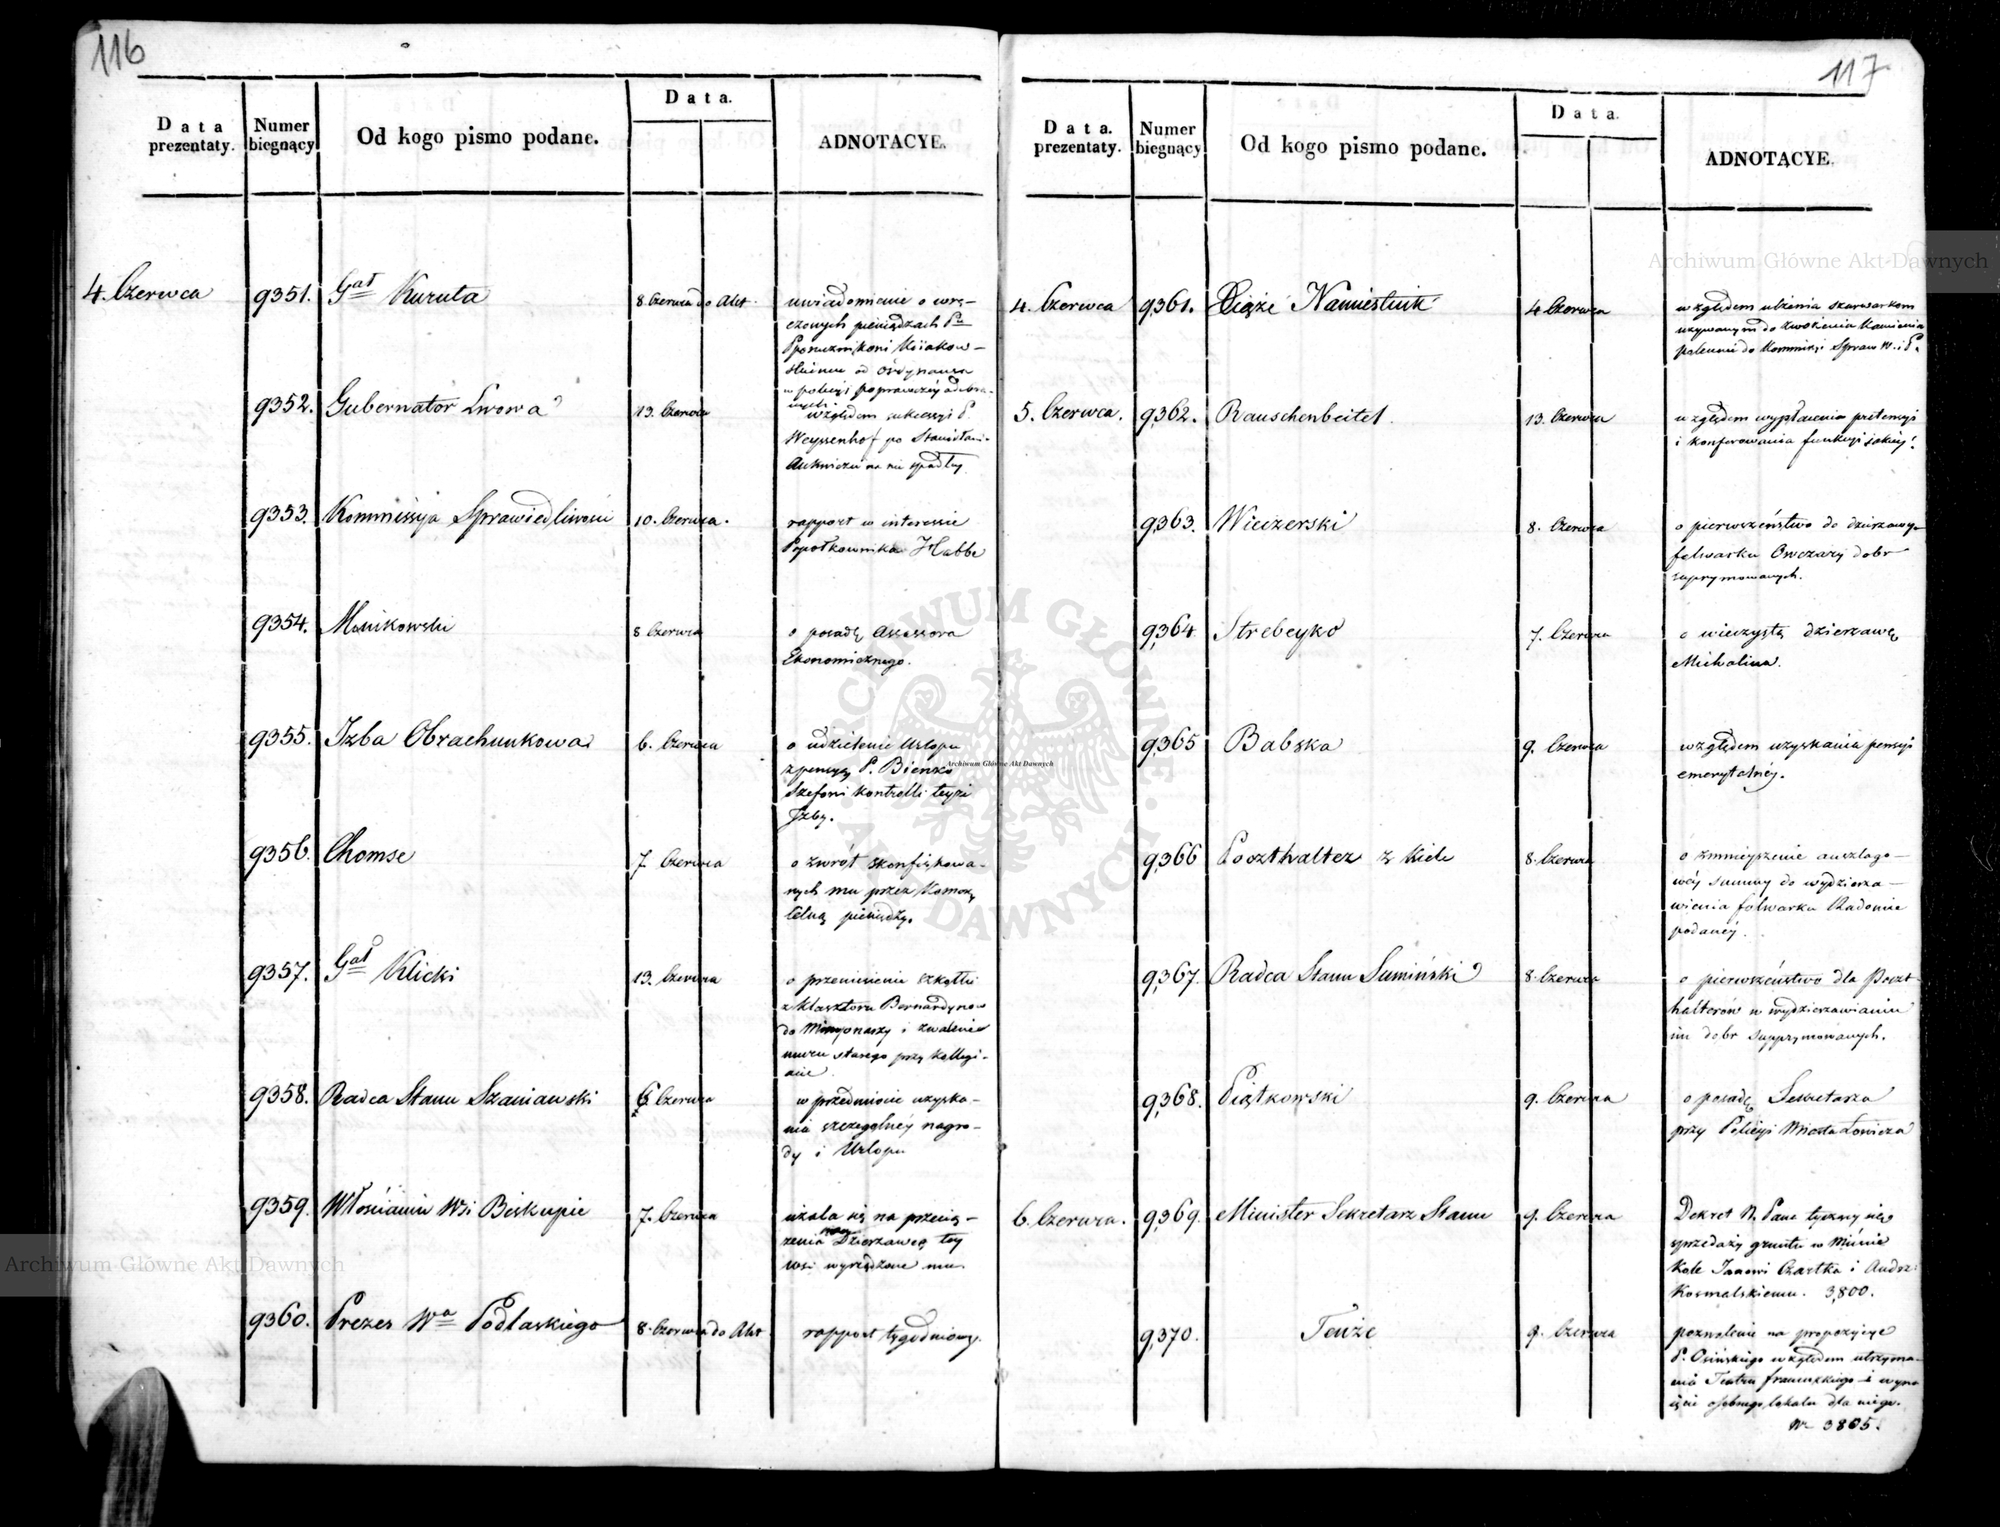 116
Data prezentaty.
Numer biegnący
Od kogo pismo podane.
Data.
ADNOTACYE.
4. Czerwca
9351.
Gał Kuruta
8. Czerwca do Akt.
uwiadomienie o wrę-
czonych pieniądzach
od Ordynansa
w policyi poprawczey odebra-
nych
9352.
Gubernator Lwowa
13. Czerwca
względem sukcessyi P.
Weyssenhof po
na nie spadłey
9353.
Kommissyja Sprawiedliwości
10. Czerwca.
rapport w interessie
Ppółkownika Habbe
9354.
Mnikowski
8 Czerwca
o posadę Assessora
Ekonomicznego.
9355.
Izba Obrachunkowa
6. Czerwca
o udzielenie Urlopu
z pensyą P. Bienko
Szefowi kontrolli teyże
Izby.
9356.
Chomse
7. Czerwca
o zwrót skonfiskowa-
nych mu przez Komorę
Celną pieniędzy.
9357.
Gał Klicki
13. Czerwca
o przeniesienie szkółki
z klasztoru Bernardynow
do i zwalenie
muru starego przy kollegi-
acie
9358.
Radca Stanu Szaniawski
6. Czerwca
w przedmiocie uzyska-
nia szczególnéy nagro-
dy i Urlopu
9359.
Włościanin Wsi Biskupie
7. Czerwca
użala się na przecią-
żenia Dzierzawcę tey
wsi wyrządzone mu.
9360.
Prezes Wa Podlaskiego
8. Czerwca do Akt
rapport tygodniowy.
117
Data. prezentaty.
Numer biegnący
Od kogo pismo podane.
Data.
ADNOTACYE.
4. Czerwca
9361.
Xiąże Namiestnik
4 Czerwca
względem ulżenia szarwarkom
używanym do zwożenia Kamienia
polecenie do Kommissyi Spraw W. i P.
5. Czerwca.
9362.
Rauschenbeitel.
13. Czerwca
względem wypłacenia pretensyi
i konferowania funkcyi jakiey.
9363.
Wieczerski
8. Czerwca
o pierwszeństwo do dzierzawy
folwarku Owczary dobr
supprymowanych.
9364
Strebeyko
7. Czerwca
o wieczystą dzierzawę
Michalina.
9365
Babska
9. Czerwca
względem uzyskania pensyi
emerytalnéy.
9366
Poczthalter z Kielc
8. Czerwca
o zmnieyszenie anszlago-
wéy summy do wydzierza-
wienia folwarku Radomice
podanéy.
9367.
Radca Stanu Sumiński
8. Czerwca
o pierwszeństwo dla Poczt
halterów w wydzierzawianiu
im dobr supprymowanych.
9368.
Piątkowski
9. Czerwca
o posadę Sekretarza
przy Policyi Miasta Łowicza
6. Czerwca.
9369.
Minister Sekretarz Stanu
9. Czerwca
Dekret N. Pana tyczący się
sprzedaży gruntu w Mieście
Kole Janowi Czartka i Andrz:
Kosmalskiemu. 3,800.
9370.
Tenże
9. Czerwca
pozwolenie na propozycye
P. Osińskiego względem utrzyma-
nia Teatru francuzkiego i wyna
ięcie osobnego lokalu dla niego.
N. 3805.
Archiwum Główne Akt Dawnych
Archiwum Główne Akt Dawnych
Archiwum Główne Akt Dawnych
ARCHIWUM GŁÓWNE AKT DAWNYCH